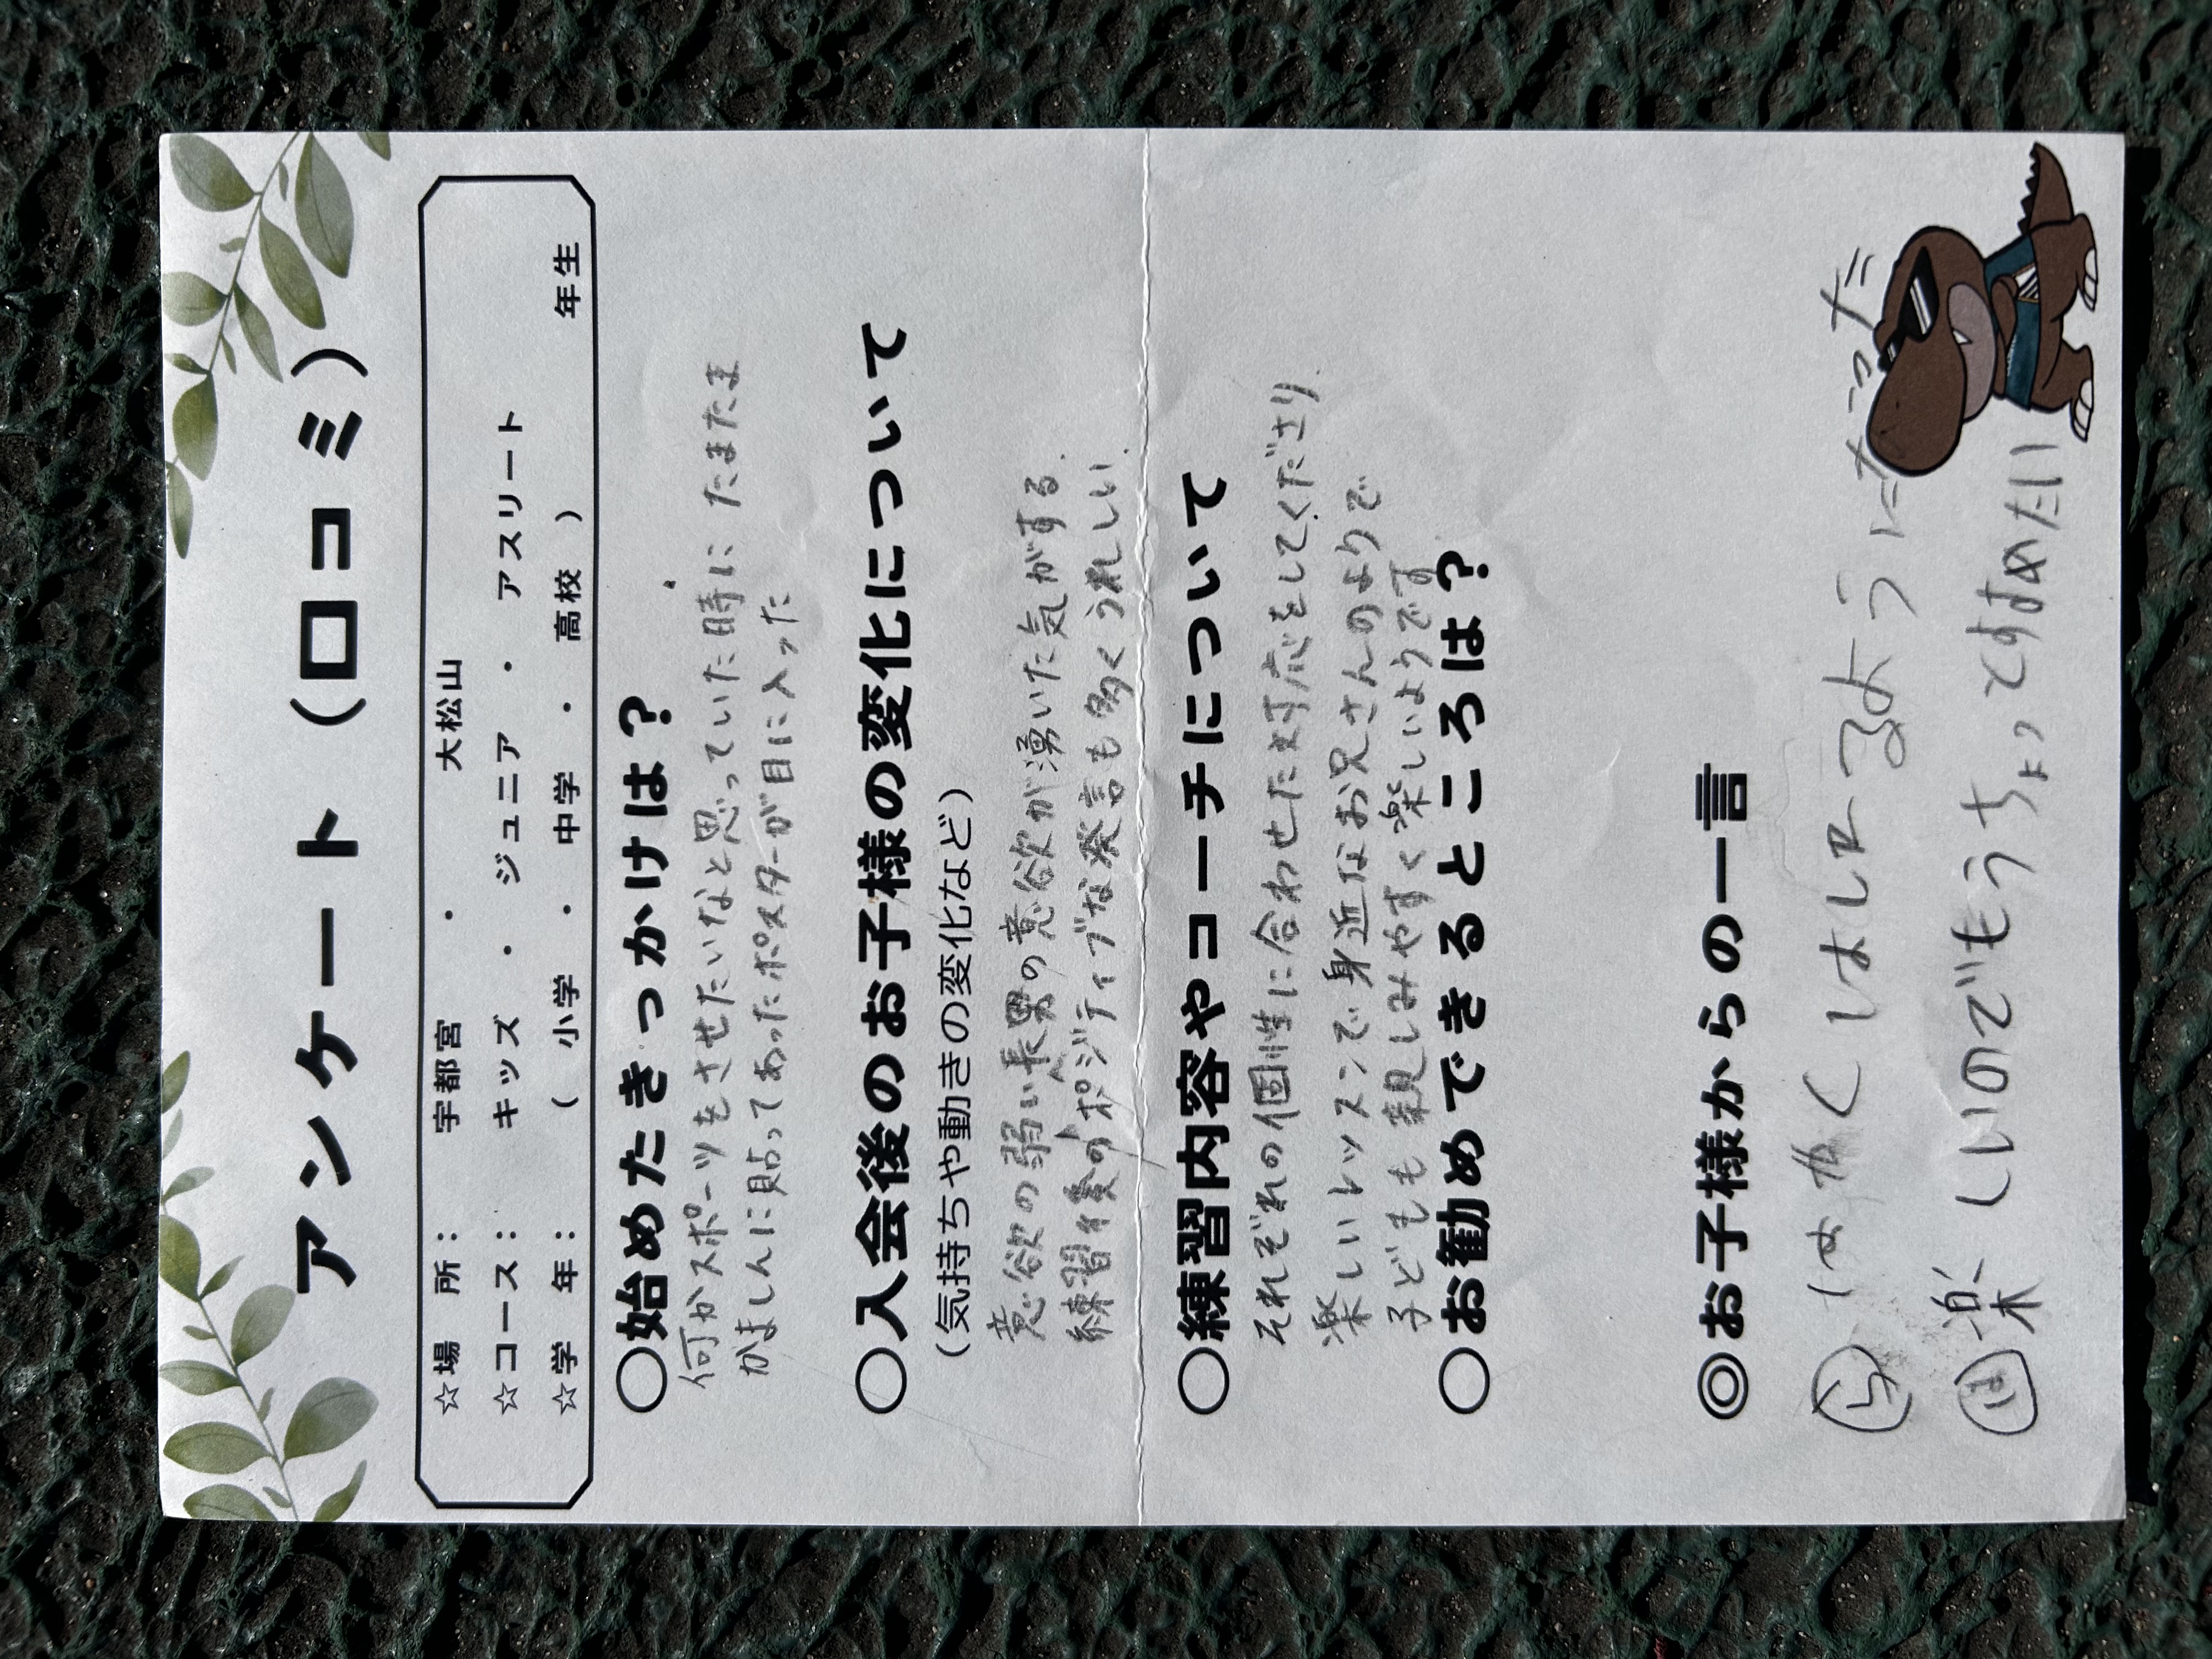 アンケート（口コミ）
☆場　所：　宇都宮　・　大松山
☆コース：　キッズ　・　ジュニア　・　アスリート
☆学　年：　（　小学　・　中学　・　高校　）　年生
○始めたきっかけは？
何かスポーツをさせたいなと思っていた時に たまたま
かましんに貼ってあったポスターが目に入った
○入会後のお子様の変化について
（気持ちや動きの変化など）
意欲の弱い長男の意欲が湧いた気がする.
練習後のポジティブな発言も多くうれしい.
○練習内容やコーチについて
それぞれの個性に合わせた対応をしてくださり.
楽しいレッスンで身近なお兄さんのようで
子どもも親しみやすく楽しいようです
○お勧めできるところは？
◎お子様からの一言
はやくはしれるようになった
楽しいのでもうちょっとすすめたい